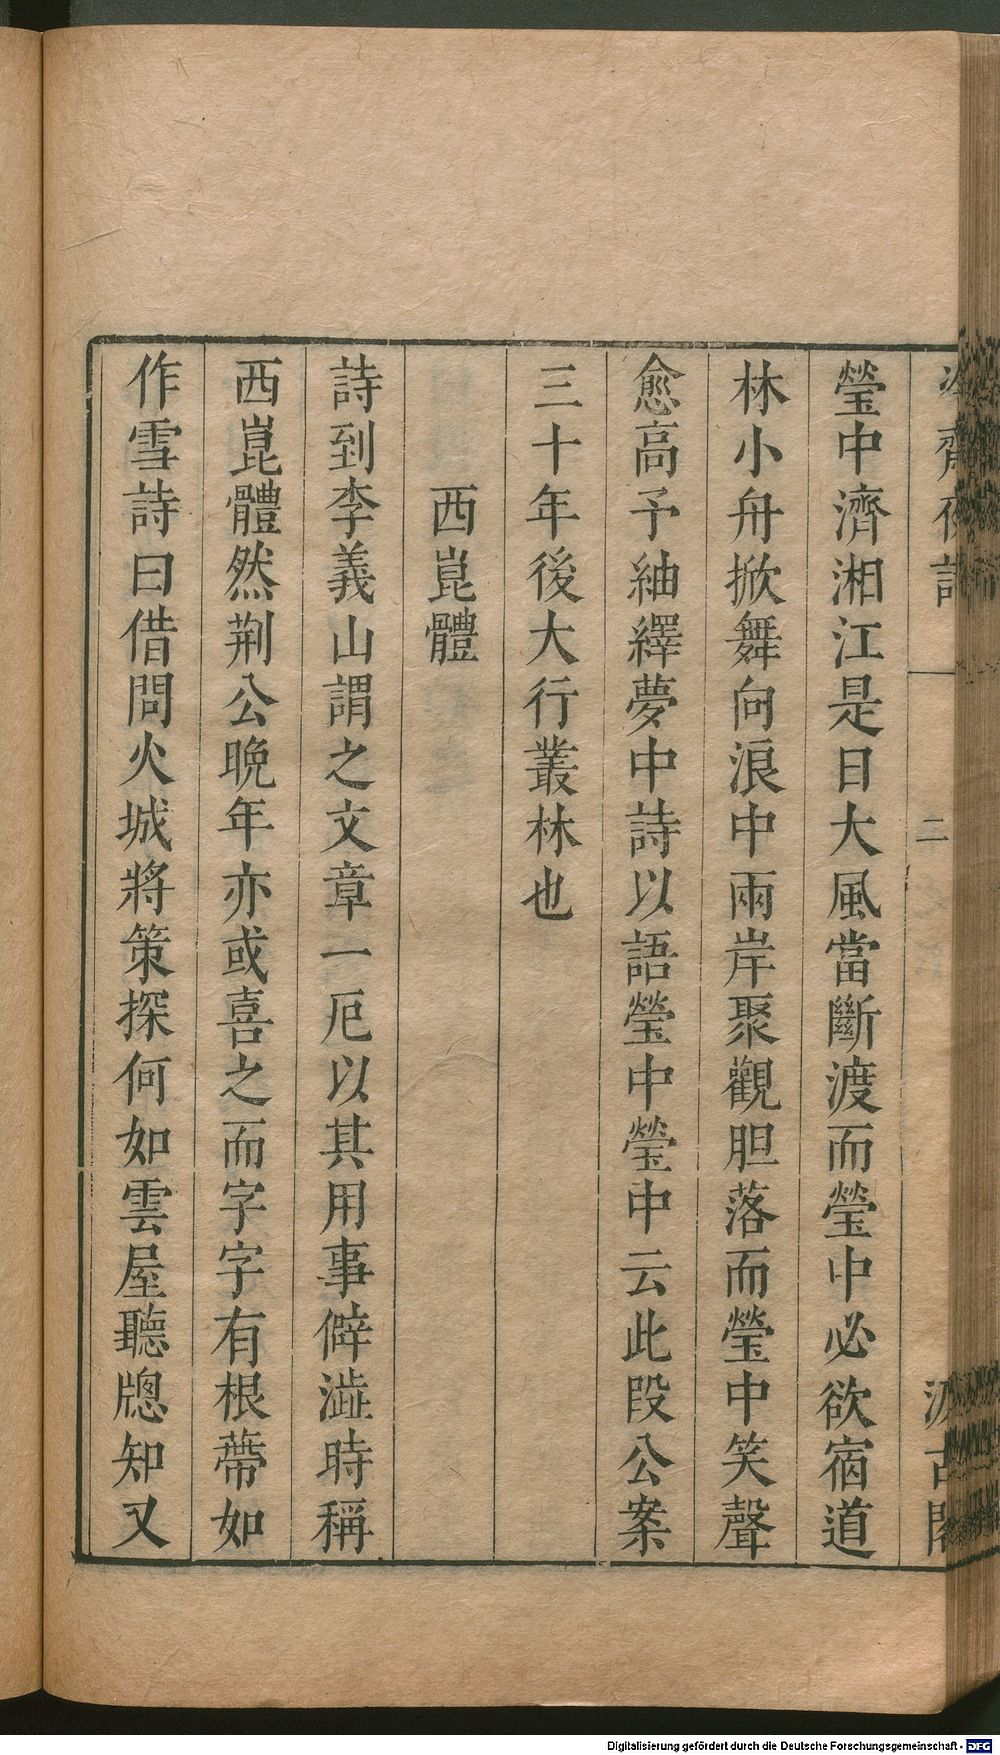 瑩中濟湘江是日大風當斷渡而瑩中必欲宿道
林小舟掀舞向浪中兩岸聚觀胆落而瑩中笑聲
愈高予紬繹夢中詩以語瑩中瑩中云此段公案
三十年後大行叢林也
西崑體
詩到李義山謂之文章一厄以其用事僻澁時稱
西崑體然荆公晩年亦或喜之而字字有根蔕如
作雪詩曰借問火城將策探何如雲屋聽牕知又
二
Digitalisierung gefördert durch die Deutsche Forschungsgemeinschaft - DFG